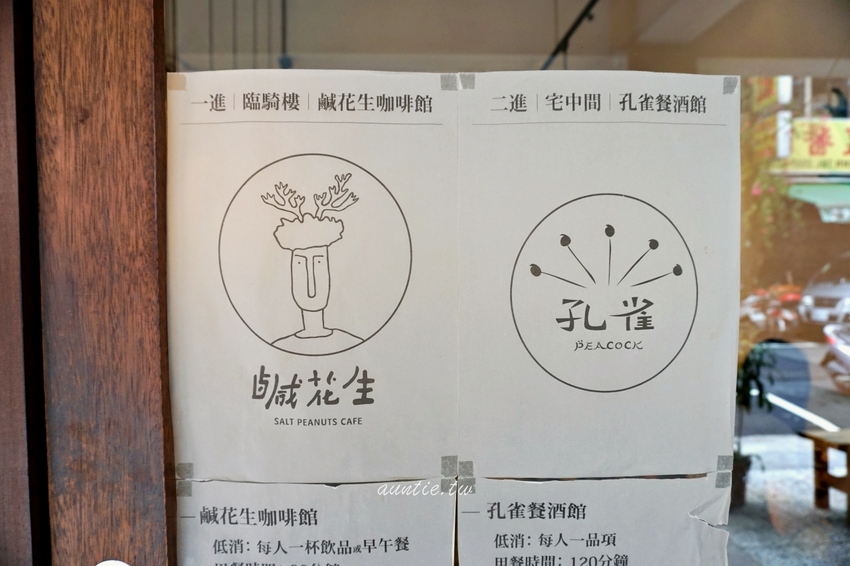 一進｜臨騎樓｜鹹花生咖啡館
鹹花生
SALT PEANUTS CAFE
二進｜宅中間｜孔雀餐酒館
孔雀
PEACOCK
auntie.tw
—鹹花生咖啡館
低消：每人一杯飲品或早午餐
用餐時間：
—孔雀餐酒館
低消：每人一品項
用餐時間：120分鐘